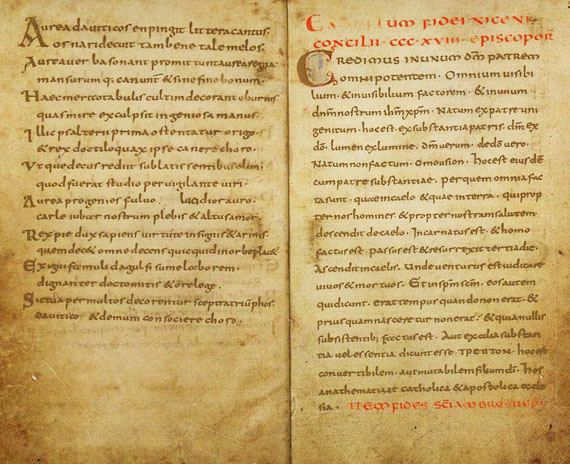 Aurea dauiticos en pingit littera cantus.
ornari decuit tam bene tale melos.
Aurea uerba sonant promittunt aurea regna
mansurumq; canunt & sine fine bonum.
Haec merito tabulis cultim decorant eburnis
quas mire exculpsit ingeniosa manus.
Illic psalterii prima ostentatur origo.
& rex doctiloquax ipse canere choro.
Utque decus rediit sublatis sentibus olim.
quod fuerat studio peruigilante uiri
Aurea progenies fuluo lucidior auro.
carle iubar nostrum plebis & altus amor.
Rex pie dux sapiens uirtute insignis & armis.
quem dec& omne decens quicquid in orbe plac&
Exigui famuli dagulfi sume laborem.
dignanter docto mitis & ore lege.
Sic tua per multos decorentur sceptra triumphos.
dauitico & demum consociere choro.
UM FIDEI NICENI
CONCILII · CCC · XVIII · EPISCOPOR
CREDIMUS IN UNUM DM̄ PATREM
OMNIPOTENTEM. Omnium uisibi
lium. & inuisibilium factorem. & in unum
dnm̄ nostrum ihm̄ xpm̄. Natum ex patre uni
genitum. hoc est. ex substantia patris. dm̄ ex
dō. lumen ex lumine. dm̄ uerum. de dō uero.
Natum non factum. Omousion. hoc est eiusdē
cum patre substantiae. per quem omnia fac
ta sunt. quae in caelo & quae in terra. qui prop
ter nos homines & propter nostram salutem
descendit de caelo. Incarnatus est. & homo
factus est. passus est & resurrexit tertia die.
Ascendit in caelis. Unde uenturus est iudicare
uiuos & mortuos. Et in spm̄ scm̄. eos autem
qui dicunt. erat tempus quando non erat. &
priusquam nasceretur non erat. & quia nullis
subsistentib; factus est. Aut ex alia substan
tia uel essentia dicunt esse. ΤΡΕΠΤΟΝ. hoc est
conuertibilem. aut mutabilem filium dī. hos
anathematizat catholica & apostolica eccle
sia. ITEM FIDES SCĪ AMBROSII EPI